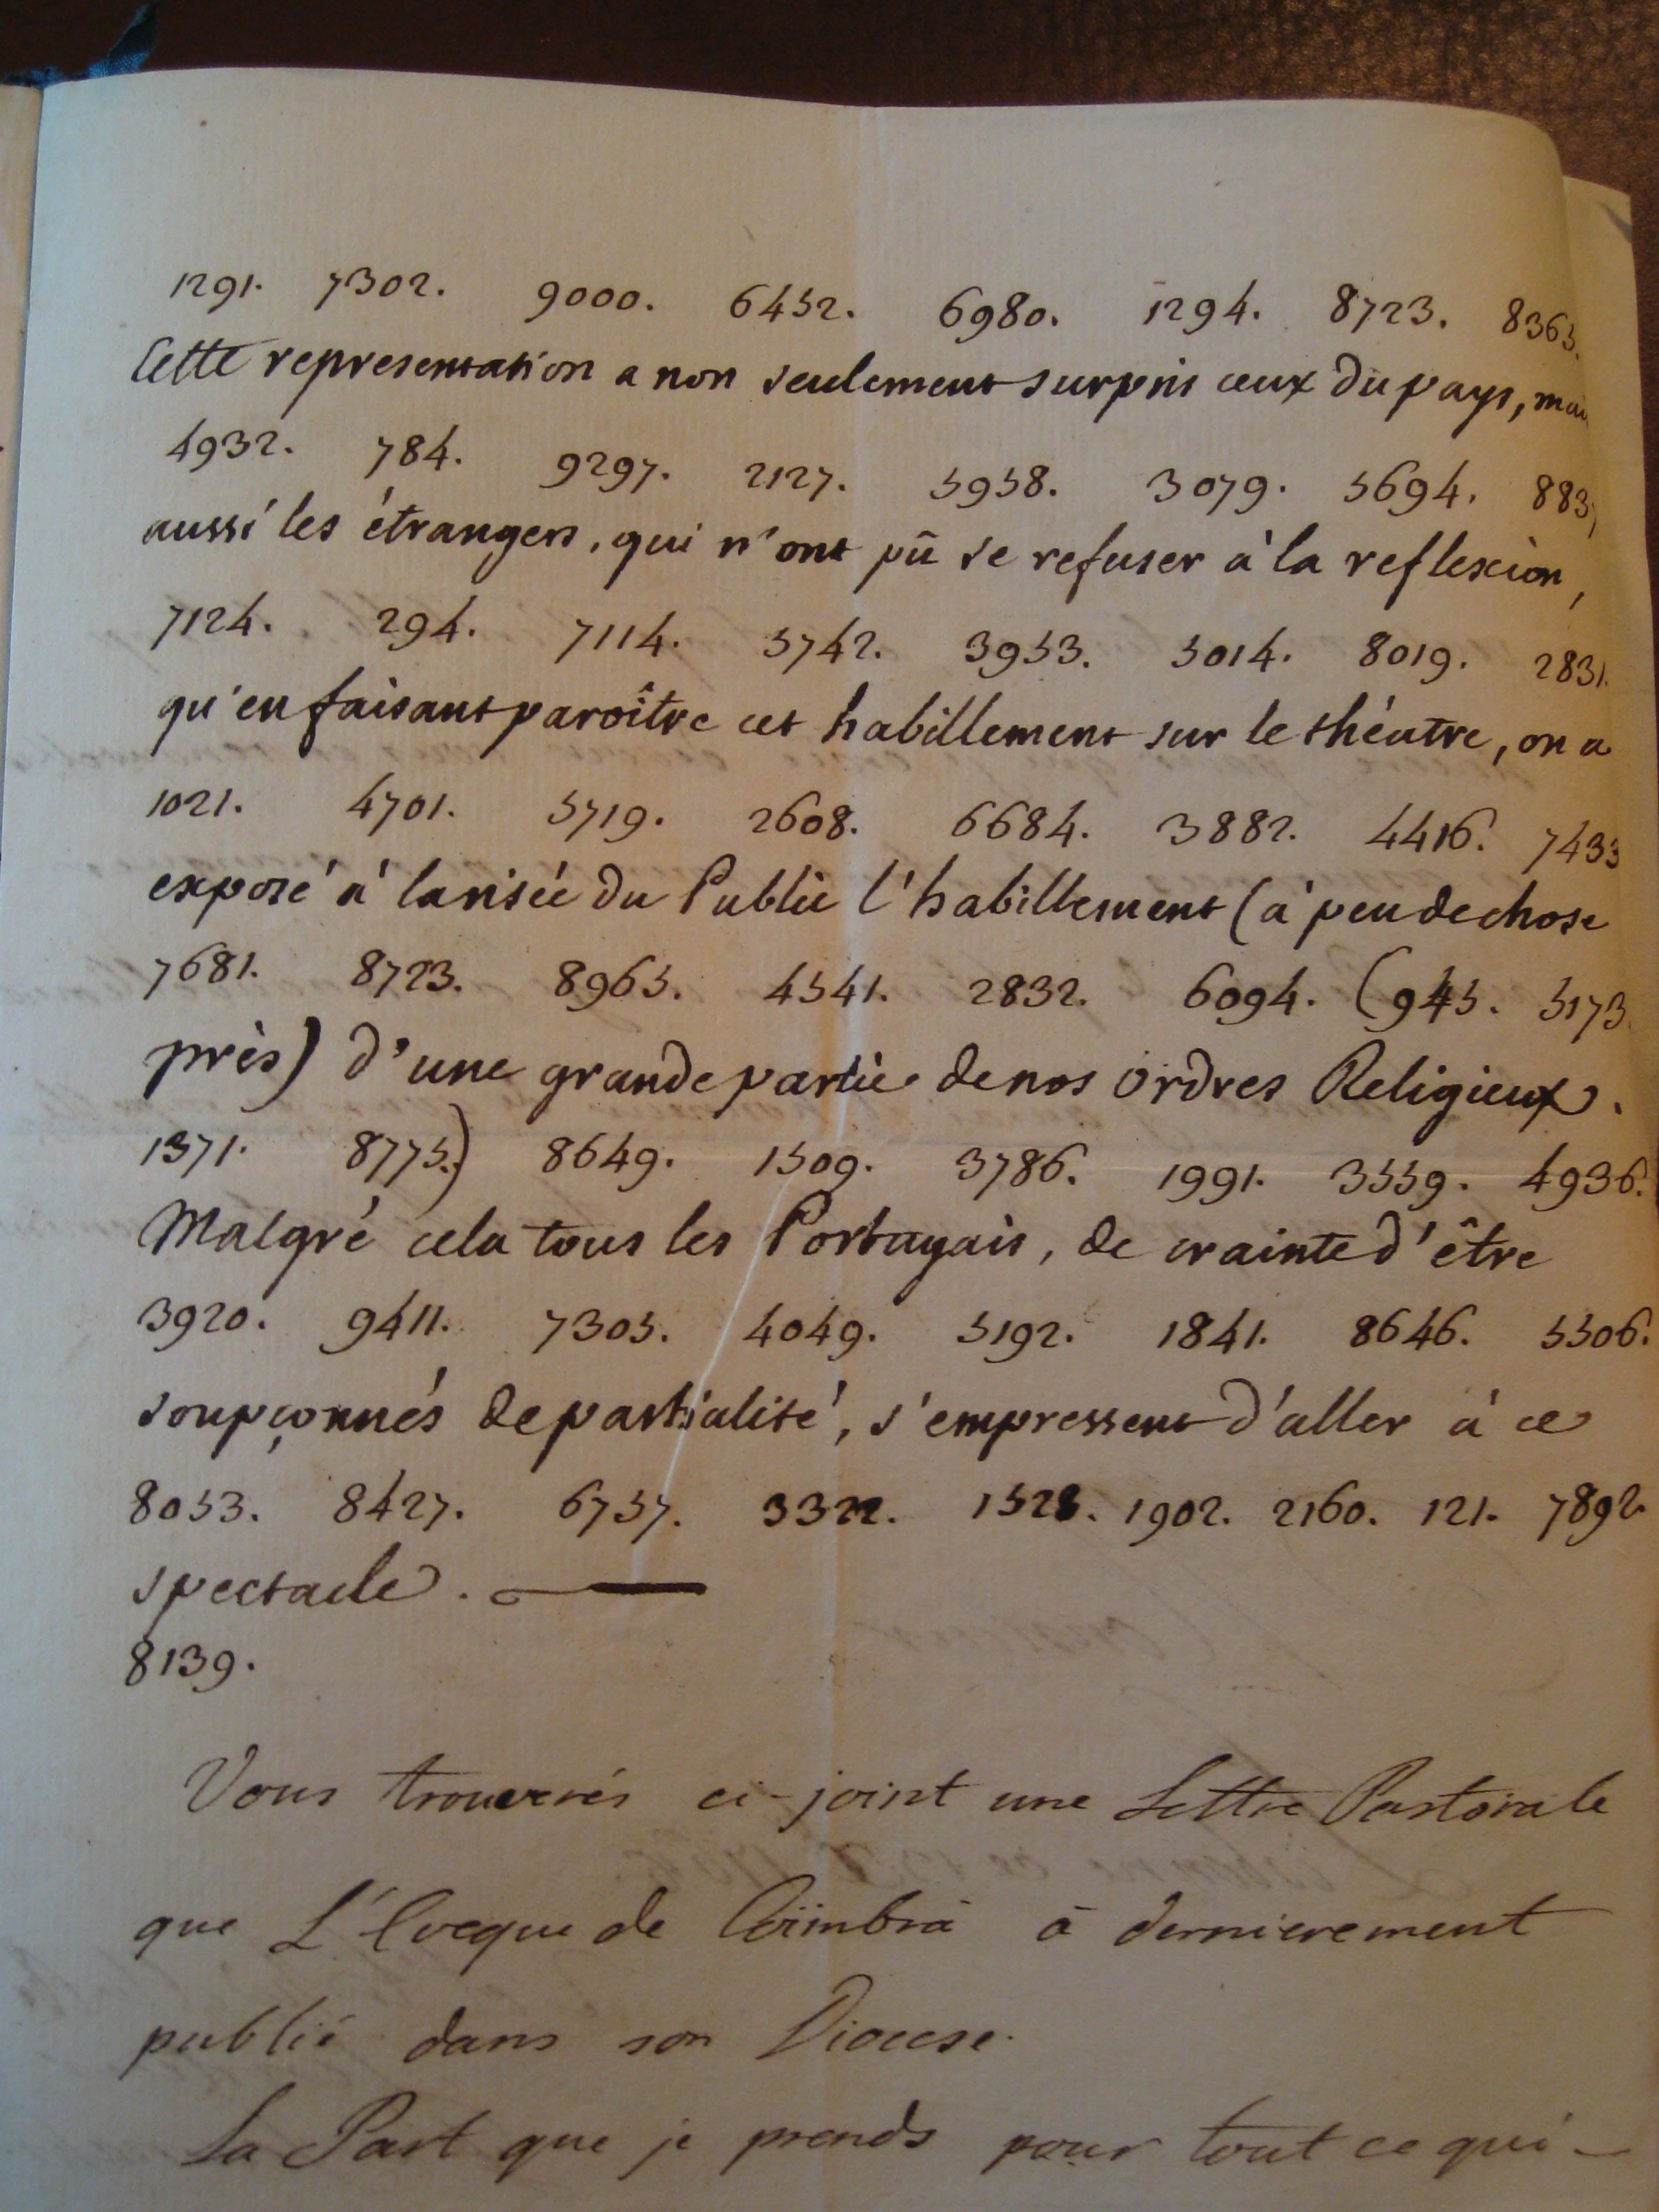 1291. 7302. 9000. 6452. 6980. 1294. 8723. 8365.
Cette representation a non seulement surpris ceux du pays, mais
4932. 784. 9297. 2127. 5958. 3079. 5694. 883
aussi les étrangers, qui n'ont pû se refuser à la reflexion,
7124. 294. 7114. 5742. 3953. 5014. 8019. 2831.
qu'en faisant paroître cet habillement sur le théatre, on a
1021. 4701. 5719. 2608. 6684. 3882. 4416. 7433
exposé à la risée du Public l'habillement (à peu de chose
7681. 8723. 8965. 4541. 2832. 6094. (945. 5173.
près) d'une grande partie de nos Ordres Religieux.
1371. 8775.) 8649. 1509. 3786. 1991. 3559. 4936.
Malgré cela tous les Portugais, de crainte d'être
3920. 9411. 7305. 4049. 5192. 1841. 8646. 5506.
soupçonnés de partialité, s'empressent d'aller à ce
8053. 8427. 6757. 3322. 1528. 1902. 2160. 121. 7892
spectacle.
8139.
Vous trouverés ci-joint une Lettre Pastorale
que L'Eveque de Coïmbra à dernierement
publié dans son Diocese.
La Part que je prends pour tout ce qui-